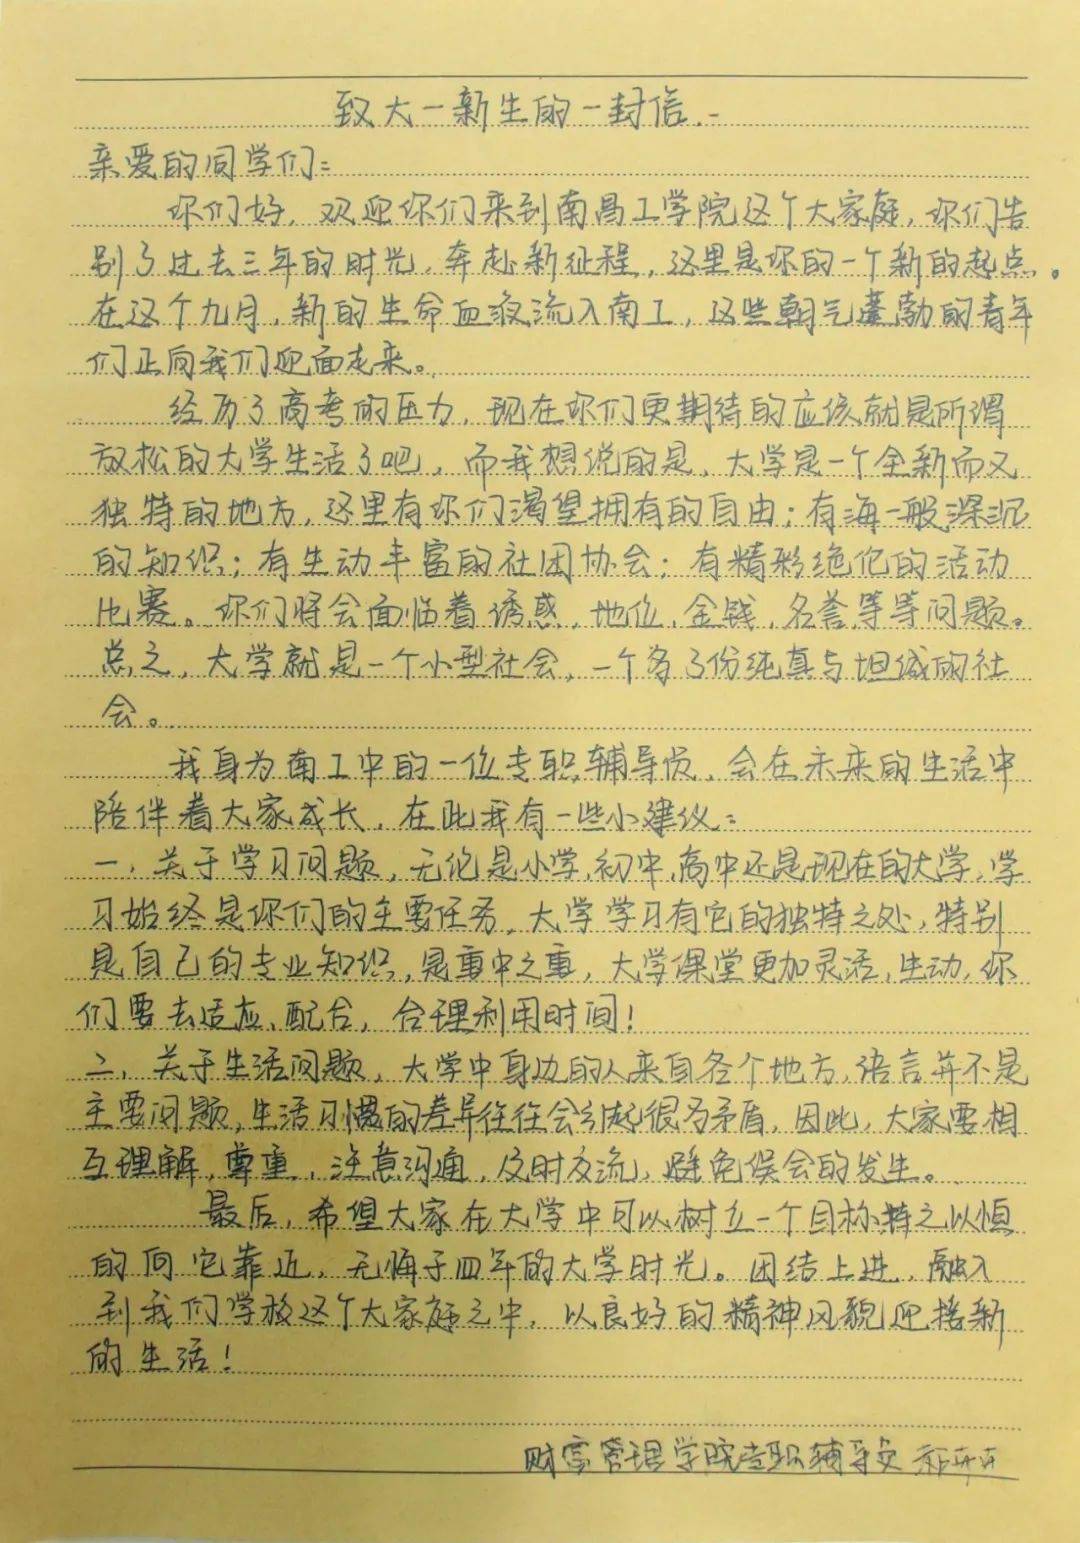 致大一新生的一封信.
亲爱的同学们:
你们好，欢迎你们来到南昌工学院这个大家庭，你们告
别了过去三年的时光，奔赴新征程，这里是你的一个新的起点。
在这个九月，新的生命血液流入南工，这些朝气蓬勃的青年
们正向我们迎面走来。
经历了高考的压力，现在你们更期待的应该就是所谓
放松的大学生活了吧，而我想说的是，大学是一个全新而又
独特的地方，这里有你们渴望拥有的自由；有海一般深沉
的知识；有生动丰富的社团协会；有精彩绝伦的活动
比赛。你们将会面临着诱惑，地位，金钱，名誉等等问题。
总之，大学就是一个小型社会，一个多了份纯真与坦诚的社
会。
我身为南工中的一位专职辅导员，会在未来的生活中
陪伴着大家成长，在此我有一些小建议：
一，关于学习问题，无论是小学，初中，高中还是现在的大学，学
习始终是你们的主要任务，大学学习有它的独特之处，特别
是自己的专业知识，是重中之重，大学课堂更加灵活，生动，你
们要去适应、配合，合理利用时间！
二，关于生活问题，大学中身边的人来自各个地方，语言并不是
主要问题，生活习惯的差异往往会引起很多矛盾，因此，大家要相
互理解，尊重，注意沟通，及时交流，避免误会的发生。
最后，希望大家在大学中可以树立一个目标，持之以恒
的向它靠近，无悔于四年的大学时光。团结上进，融入
到我们学校这个大家庭之中，以良好的精神风貌迎接新
的生活！
财富管理学院专职辅导员